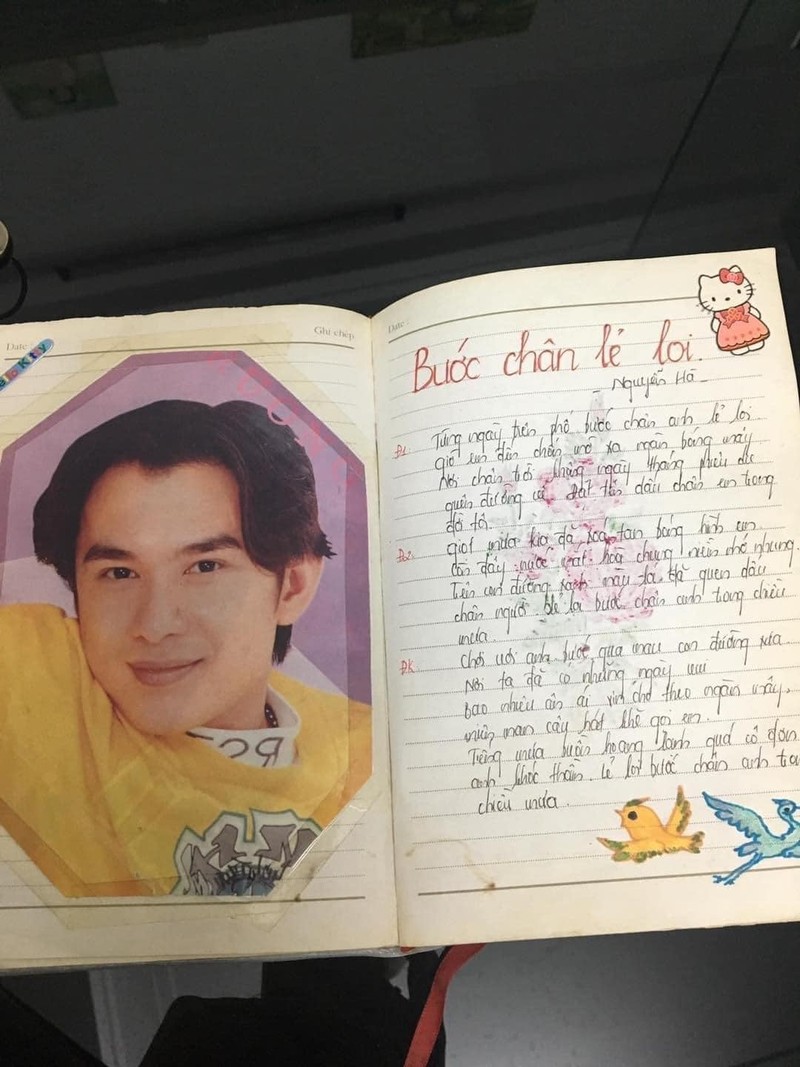 Date
Ghi chép
Date
Bước chân lẻ loi.
- Nguyễn Hà -
Đ1. Từng ngày trên phố bước chân anh lẻ loi.
giờ em đến chốn mô xa ngàn bóng mây
Nơi chân trời tháng ngày tháng phiêu du
quên đường về Dat tìm dấu chân em trong
đời tôi.
Đ2. giọt mưa kia đã xoá tan bóng hình em.
còn đây nước mắt hoà chung niềm nhớ nhung
Trên con đường xanh màu lá đã quen dấu
chân người lẻ loi bước chân anh trong chiều
mưa.
ĐK. Chơi vơi anh bước qua mau con đường xưa.
Nơi ta đã có những ngày vui
bao nhiêu ân ái xin chở theo ngàn mây,
miên man cây hát khẽ gọi em.
Tiếng mưa buồn hoang lạnh quá cô đơn
anh khóc thầm. lẻ loi bước chân anh tro
chiều mưa.